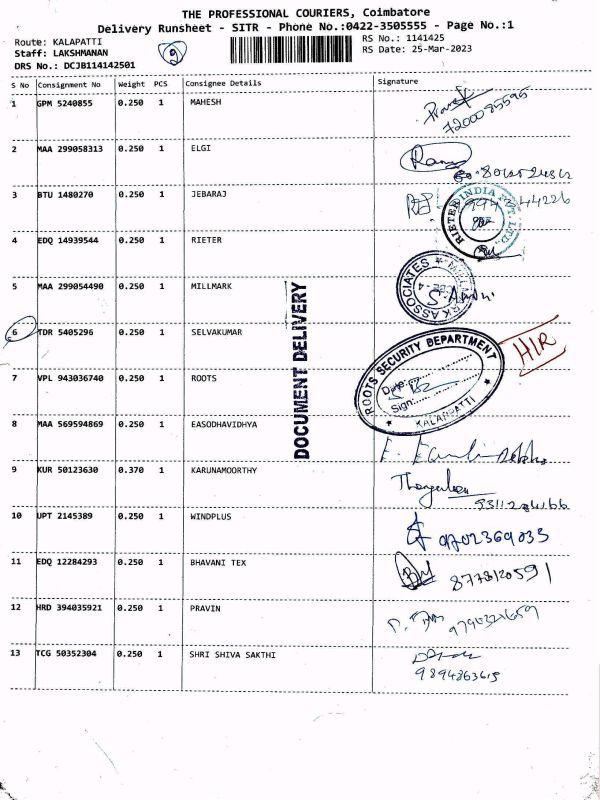 THE PROFESSIONAL COURIERS, Coimbatore
Delivery Runsheet - SITR - Phone No.:0422-3505555 - Page No.:1
Route: KALAPATTI
Staff: LAKSHMANAN
DRS No.: DCJB114142501
2
RS No.: 1141425
RS Date: 25-Mar-2023
S No Consignment No Weight PCS Consignee Details Signature
1 GPM 5240855 0.250 1 MAHESH
7200085595
2 MAA 299058313 0.250 1 ELGI
3 BTU 1480270 0.250 1 JEBARAJ
RIETER INDIA PVT. LTD.
4 EDQ 14939544 0.250 1 RIETER
5 MAA 299054490 0.250 1 MILLMARK
ASSOCIATES
DOCUMENT DELIVERY
6 TDR 5405296 0.250 1 SELVAKUMAR
HIR
7 VPL 943036740 0.250 1 ROOTS
ROOTS SECURITY DEPARTMENT
Date:
Sign:
KALAPPATTI
8 MAA 569594869 0.250 1 EASODHAVIDHYA
9 KUR 50123630 0.370 1 KARUNAMOORTHY
10 UPT 2145389 0.250 1 WINDPLUS
9702369035
11 EDQ 12284293 0.250 1 BHAVANI TEX
8778120591
12 HRD 394035921 0.250 1 PRAVIN
13 TCG 50352304 0.250 1 SHRI SHIVA SAKTHI
9894863615